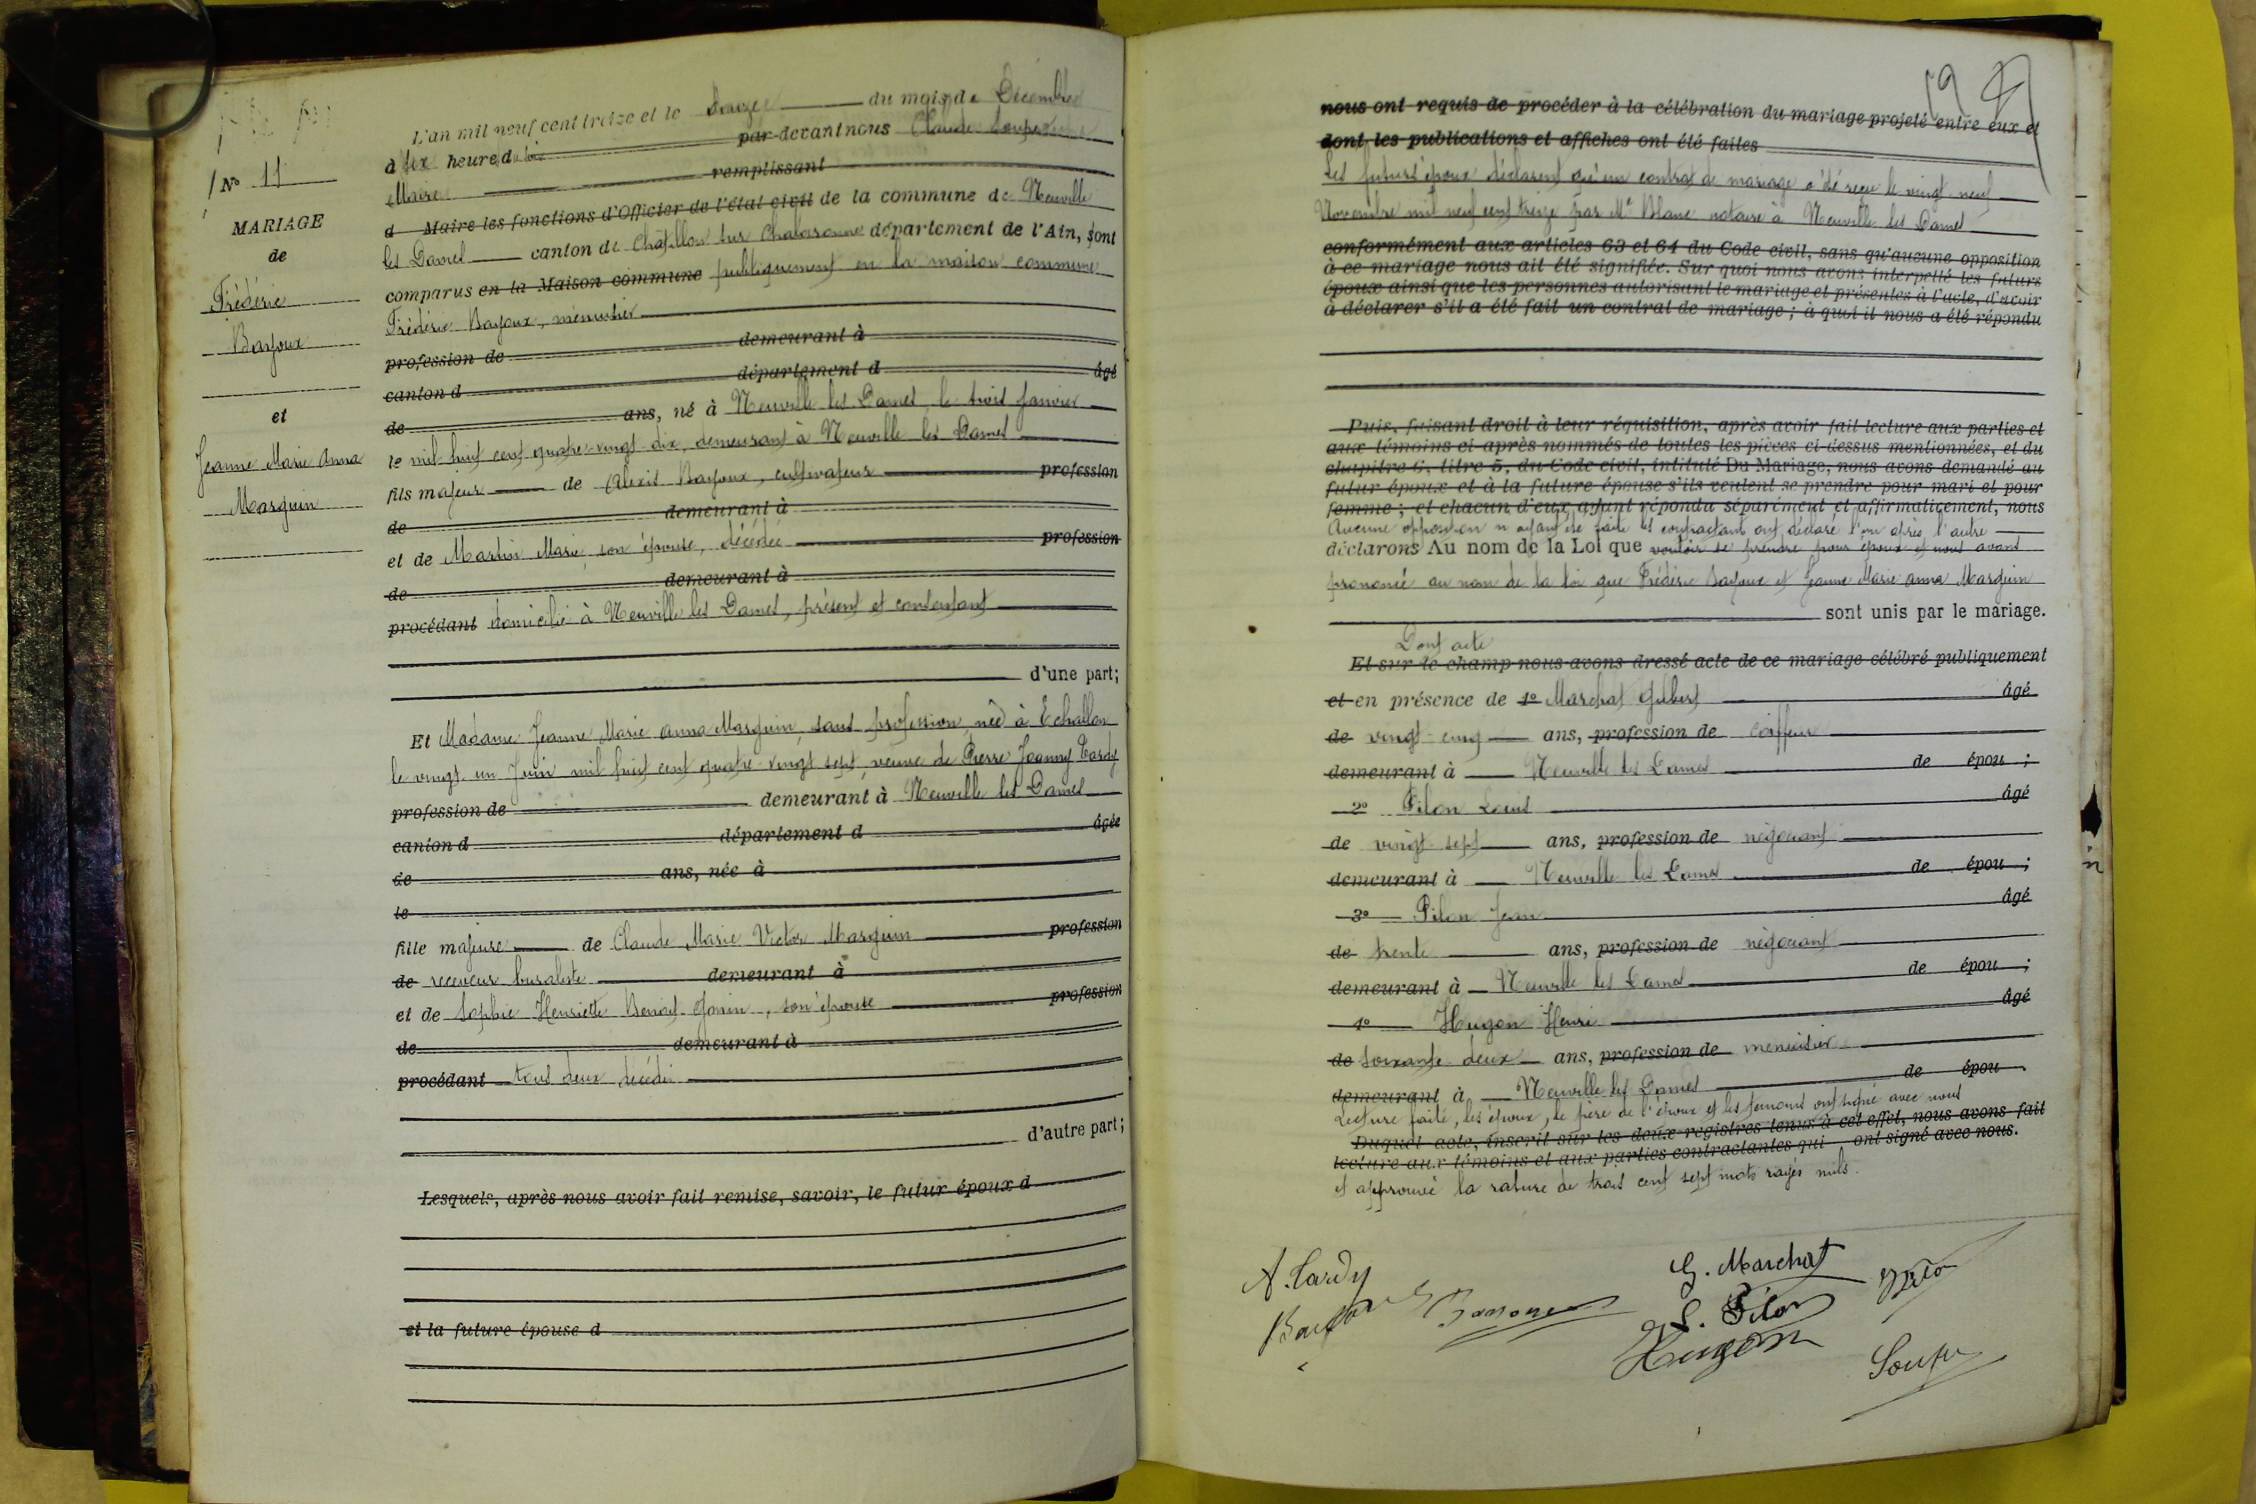 L'an mil neuf cent treize et le douze du mois de Décembre
à dix heures du par devant nous Claude
Maire remplissant
d Maire les fonctions d'Officier de l'état civil de la commune de Neuville
les Dames canton de Chatillon sur Chalaronne département de l'Ain, sont
comparus en la Maison commune publiquement en la maison commune
Frédéric Bayoux, menuisier
profession de demeurant à
canton d département d âgé
de ans, né à Neuville les Dames le trois Janvier
le mil huit cent quatre-vingt dix, demeurant à Neuville les Dames
fils majeur de Alexis Bayoux, cultivateur profession
de demeurant à
et de Martin Marie son épouse, décédée profession
de demeurant à
procédant domicilié à Neuville les Dames, présent et consentant
d'une part;
Et Madame Jeanne Marie Anna Marguin, sans profession, née à Echallon
le vingt un Juin mil huit cent quatre vingt sept, veuve de Pierre Joanny Tardy
profession de demeurant à Neuville les Dames
canton d département d âgée
de ans, née à
le
fille majeure de Claude Marie Victor Marguin profession
de receveur buraliste demeurant à
et de Sophie Henriette Benoit Gonin, son épouse profession
de demeurant à
procédant tous deux décédés
d'autre part;
Lesquels, après nous avoir fait remise, savoir, le futur époux d
et la future épouse d
No 11
MARIAGE
de
Frédéric
Bayoux
et
Jeanne Marie Anna
Marguin
19
nous ont requis de procéder à la célébration du mariage projeté entre eux et
dont les publications et affiches ont été faites
Les futurs époux déclarent qu'un contrat de mariage a été reçu le vingt neuf
Novembre mil neuf cent treize par Me Blanc notaire à Neuville les Dames
conformément aux articles 63 et 64 du Code civil, sans qu'aucune opposition
à ce mariage nous ait été signifiée. Sur quoi nous avons interpellé les futurs
époux ainsi que les personnes autorisant le mariage et présentes à l'acte, d'avoir
à déclarer s'il a été fait un contrat de mariage; à quoi il nous a été répondu
Puis, faisant droit à leur réquisition, après avoir fait lecture aux parties et
aux témoins ci-après nommés de toutes les pièces ci-dessus mentionnées, et du
chapitre 6, titre 5, du Code civil, intitulé Du Mariage, nous avons demandé au
futur époux et à la future épouse s'ils veulent se prendre pour mari et pour
femme; et chacun d'eux ayant répondu séparément et affirmativement, nous
Aucune opposition n'ayant été faite les contractants ont déclaré l'un après l'autre
déclarons Au nom de la Loi que vouloir se prendre pour époux et nous avons
prononcé au nom de la loi que Frédéric Bayoux et Jeanne Marie Anna Marguin
sont unis par le mariage.
Dont acte
Et sur le champ nous avons dressé acte de ce mariage célébré publiquement
et en présence de 1o Marchat Gilbert âgé
de vingt-cinq ans, profession de coiffeur
demeurant à Neuville les Dames de épou ;
2o Pilon Louis âgé
de vingt sept ans, profession de négociant
demeurant à Neuville les Dames de épou ;
3o Pilon Jean âgé
de trente ans, profession de négociant
demeurant à Neuville les Dames de épou ;
4o Hugon Henri âgé
de soixante deux ans, profession de menuisier
demeurant à Neuville les Dames de épou .
Lecture faite, les époux, le père de l'époux et les témoins ont signé avec nous
Duquel acte, inscrit sur les deux registres tenus à cet effet, nous avons fait
lecture aux témoins et aux parties contractantes qui ont signé avec nous.
et approuvé la rature de trois cent sept mots rayés nuls.
A. Tardy
G. Marchat
L. Pilon
Hugon